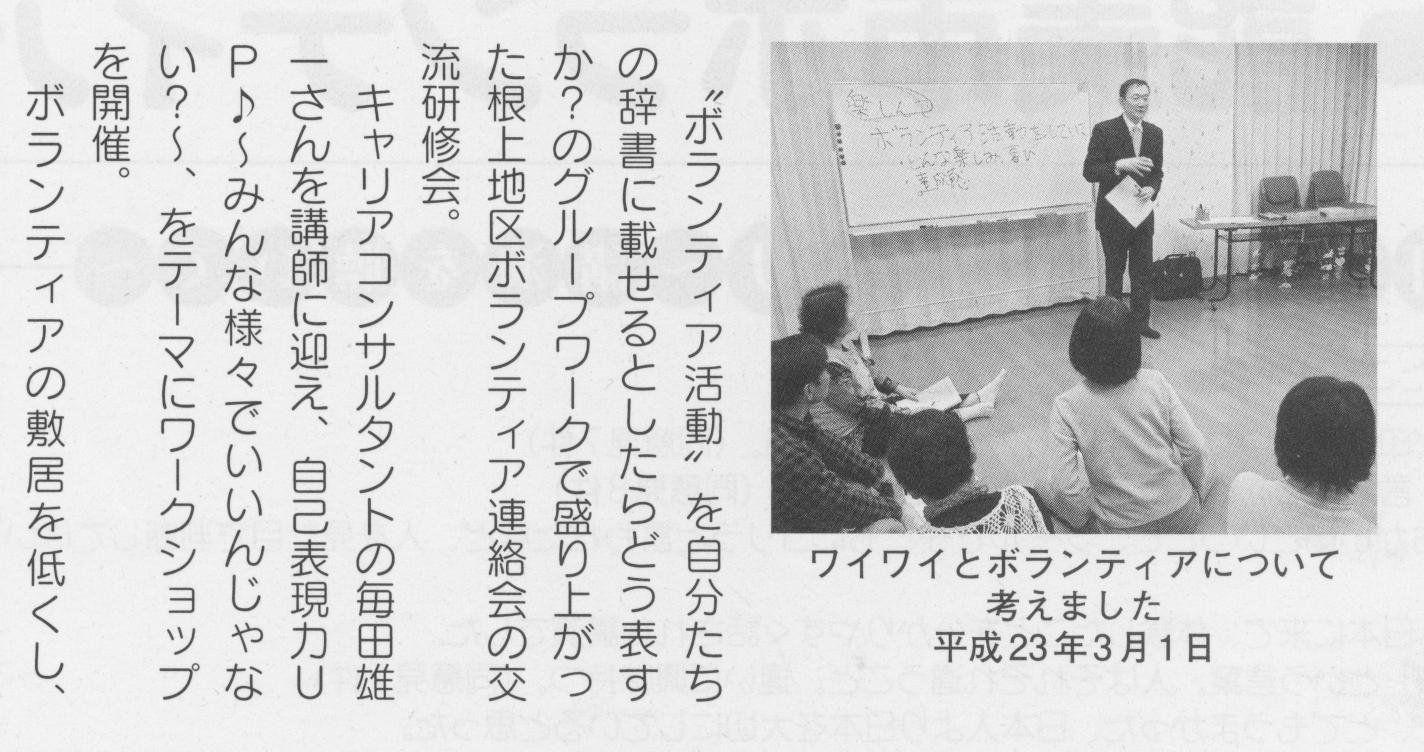 〝ボランティア活動〟を自分たち
の辞書に載せるとしたらどう表す
か?のグループワークで盛り上がっ
た根上地区ボランティア連絡会の交
流研修会。
キャリアコンサルタントの毎田雄
一さんを講師に迎え、自己表現力U
P♪〜みんな様々でいいんじゃな
い?〜、をテーマにワークショップ
を開催。
ボランティアの敷居を低くし、
楽しんで
ボランティア活動をしていて
・どんな楽しみ、喜び
・達成感
ワイワイとボランティアについて
考えました
平成23年3月1日